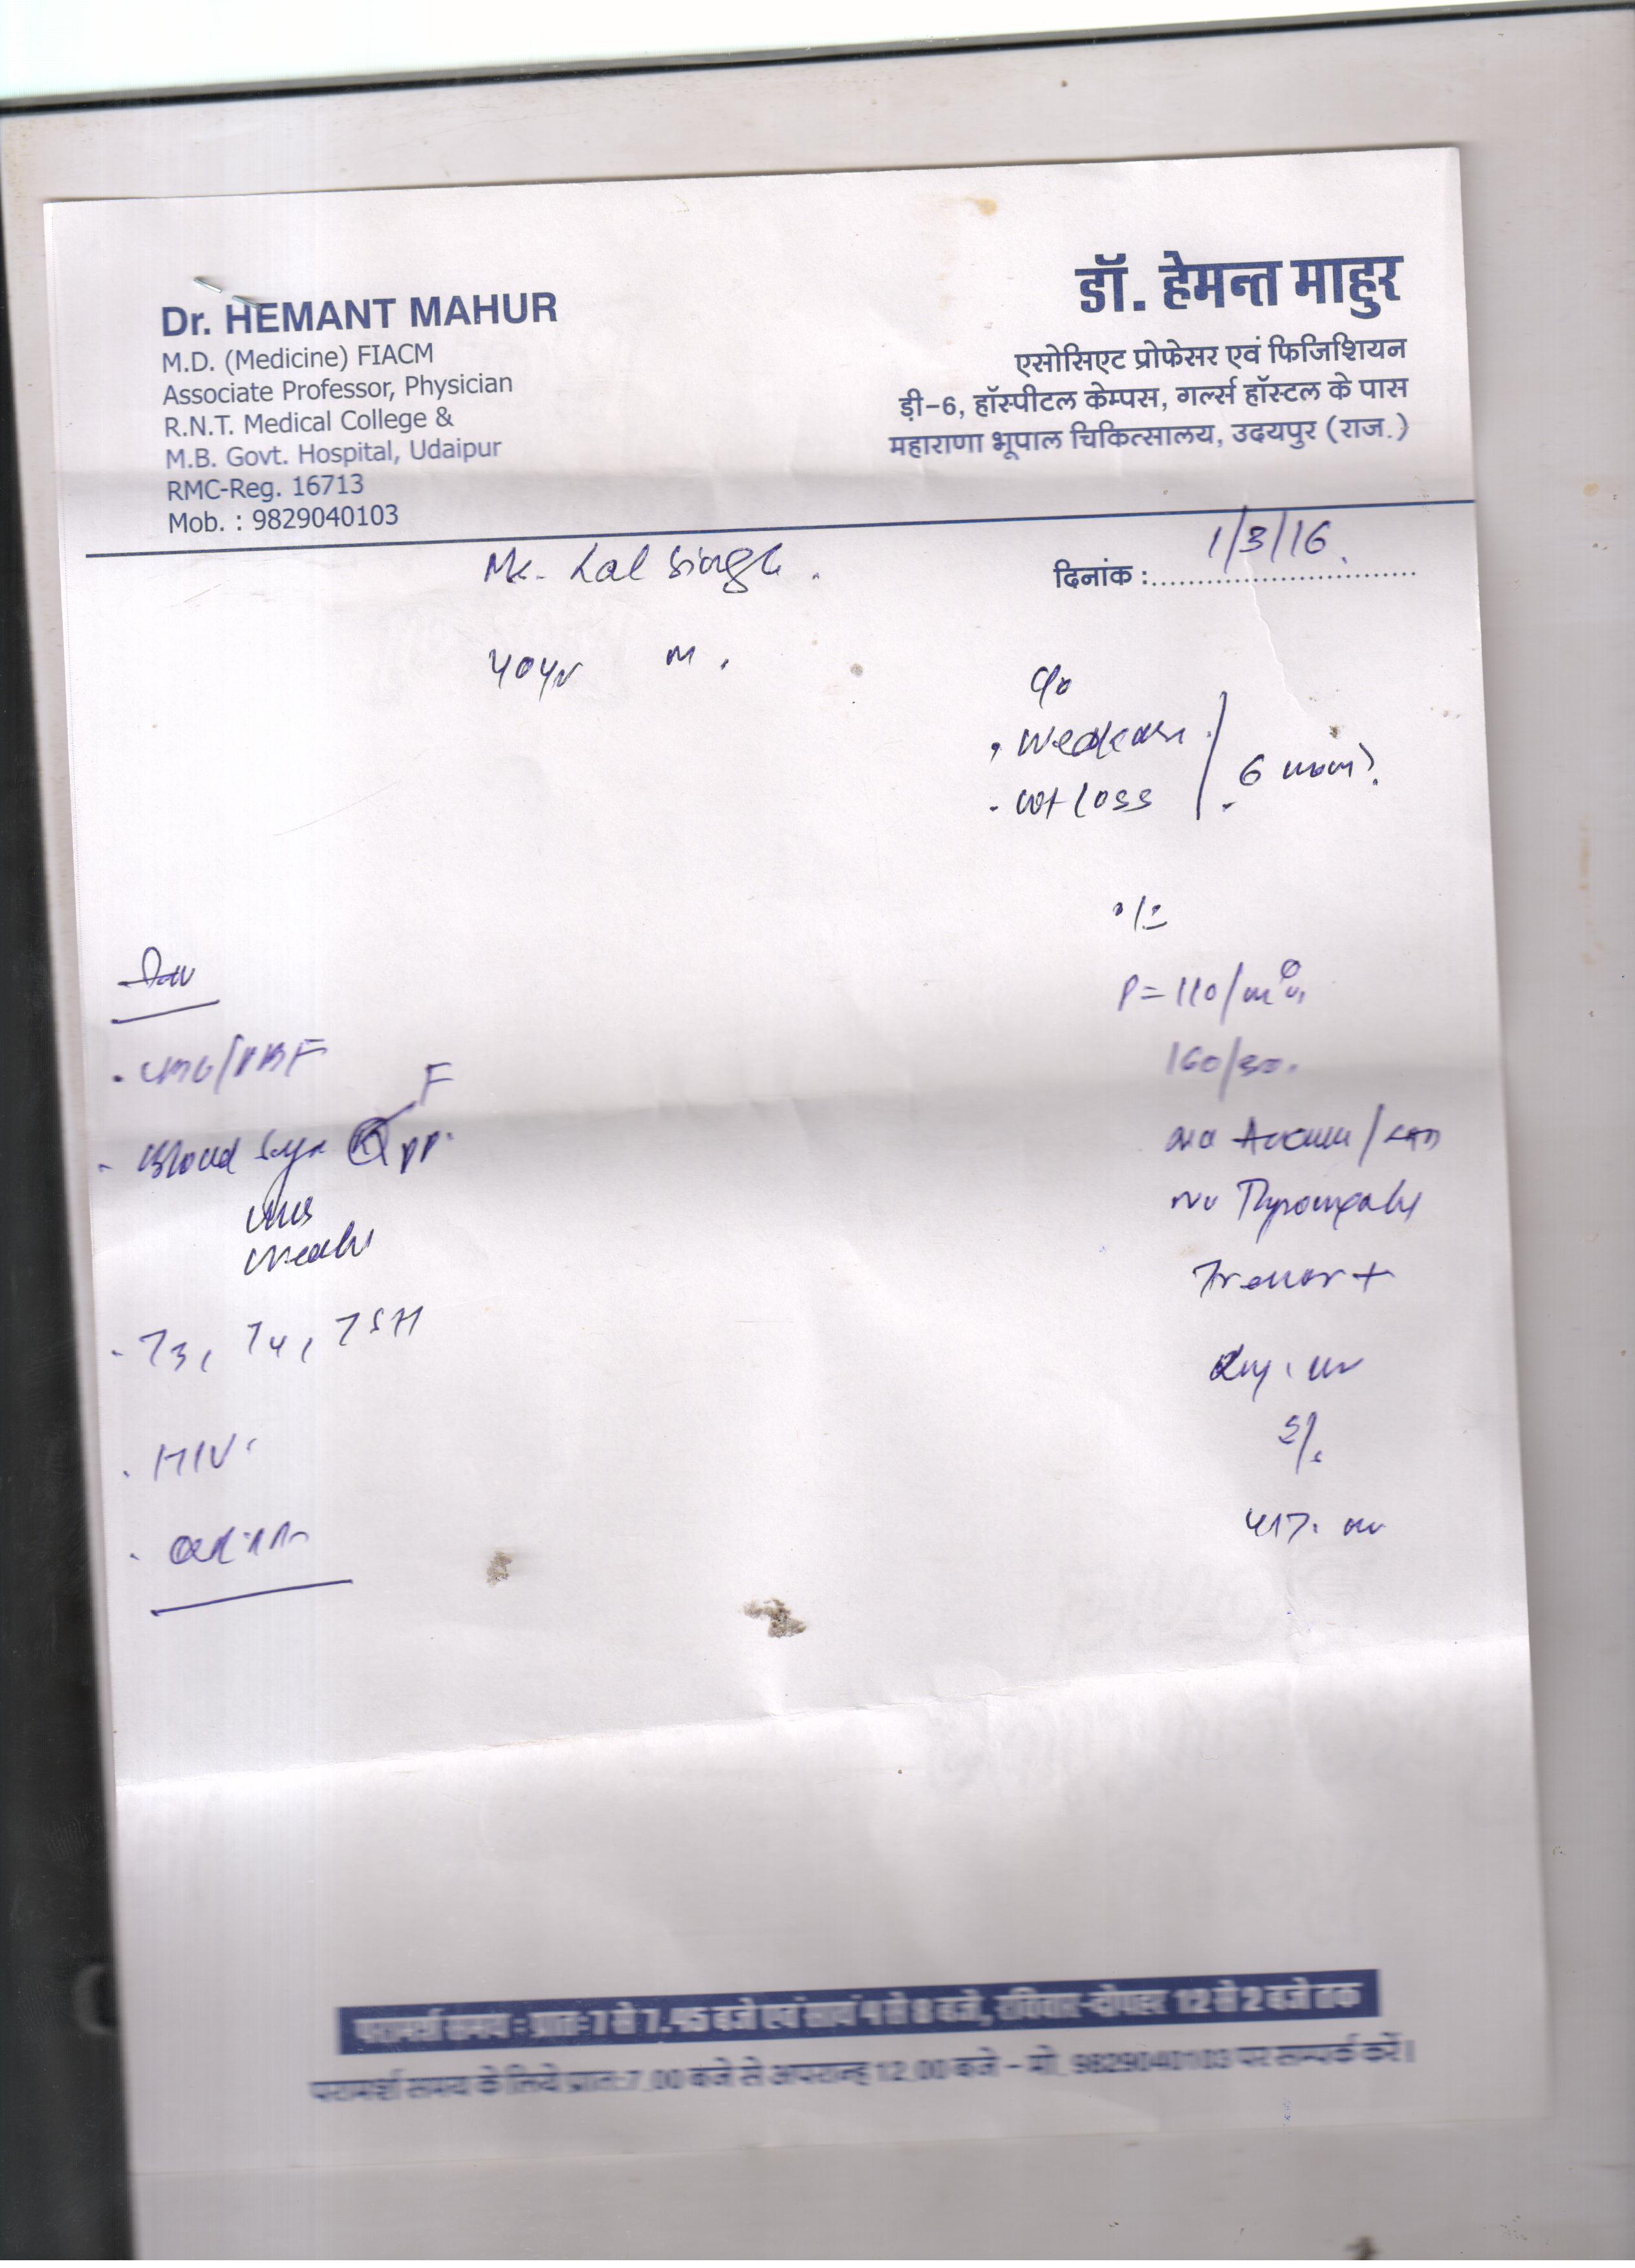 Dr. HEMANT MAHUR
M.D. (Medicine) FIACM
Associate Professor, Physician
R.N.T. Medical College &
M.B. Govt. Hospital, Udaipur
RMC-Reg. 16713
Mob. : 9829040103
डॉ. हेमन्त माहुर
एसोसिएट प्रोफेसर एवं फिजिशियन
ड़ी-6, हॉस्पीटल केम्पस, गर्ल्स हॉस्टल के पास
महाराणा भूपाल चिकित्सालय, उदयपुर (राज.)
दिनांक : 1/3/16
Mr. Lal Singh.
40yr M.
c/o
. Weakness
. wt loss
6
o/E
P = 110/min
160/90.
No /LAD
No Thyromegaly
Tremor +
. CBC/PBF
- Blood Sugar F PP.
- T3, T4, TSH
. HIV.
परामर्श समय : प्रातः 7 से 7.45 बजे एवं सायं 4 से 8 बजे, रविवार-दोपहर 12 से 2 बजे तक
परामर्श समय के लिये प्रातः 7.00 बजे से अपरान्ह 12.00 बजे - मो. 9829040103 पर सम्पर्क करें।